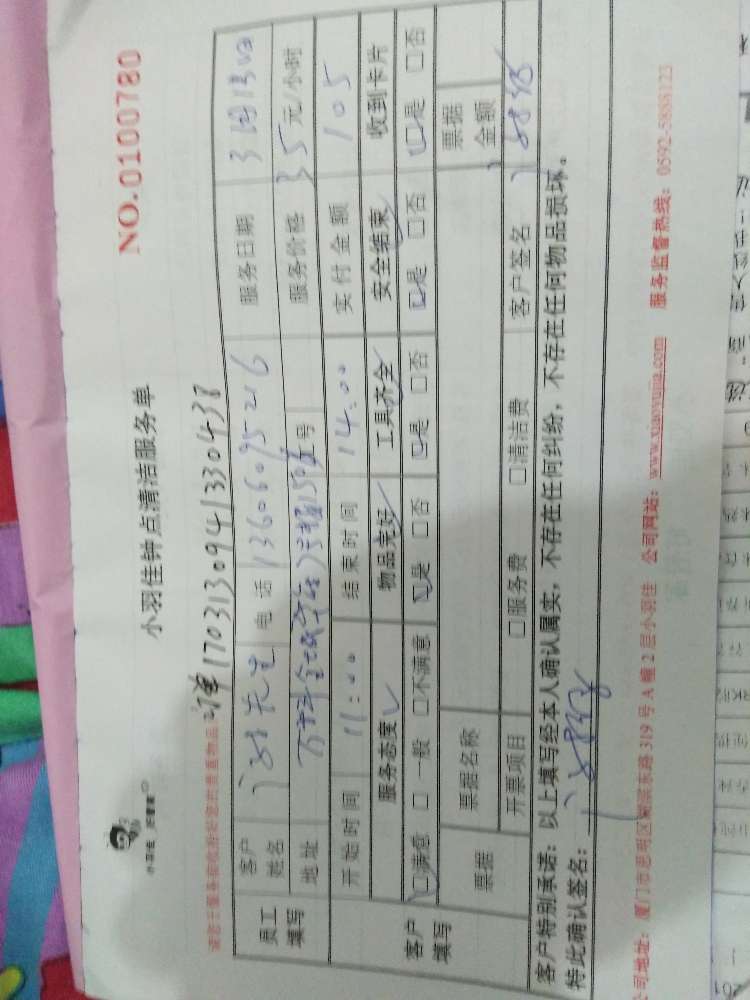 小羽佳钟点清洁服务单
NO.0100780
请您于服务前收拾好您的贵重物品 订单1703130941330438
员工填写 客户姓名 先生 电话 13606095216 服务日期 3月13日
地址 号 服务价格 35元/小时
开始时间 11:00 结束时间 14:00 实付金额 105
客户填写 服务态度 物品完好 工具齐全 安全结束 收到卡片
□满意 □一般 □不满意 □是 □否 □是 □否 □是 □否 □是 □否
票据 票据名称 票据金额
开票项目 □服务费 □清洁费 客户签名
客户特别承诺：以上填写经本人确认属实，不存在任何纠纷，不存在任何物品损坏。
特此确认签名：
公司地址：厦门市思明区湖滨东路319号A幢2层小羽佳 公司网站：www.xiaoyujia.com 服务监督热线：0592-5888123